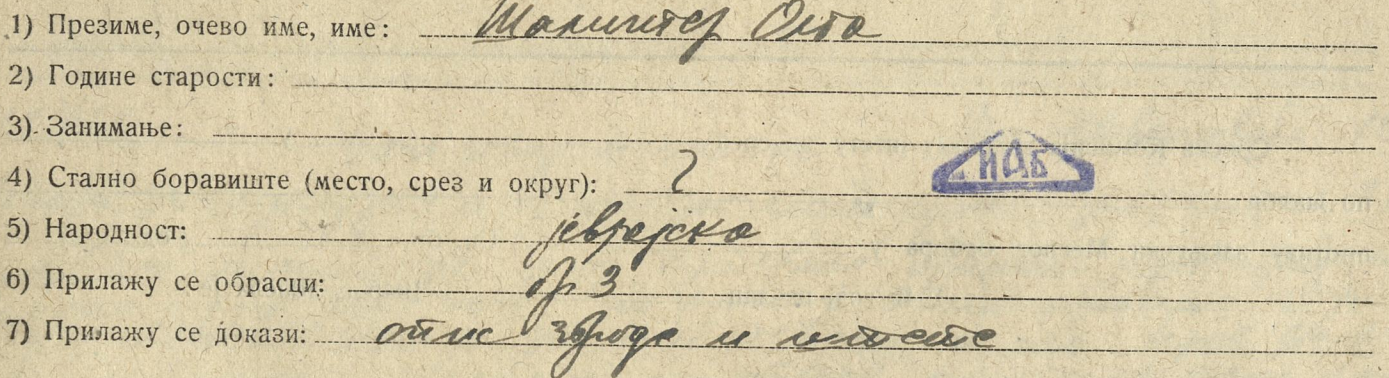 1) Презиме, очево име, име: Шалингер Ото
2) Године старости:
3) Занимање:
4) Стално боравиште (место, срез и округ): ?
ИАБ
5) Народност: јеврејска
6) Прилажу се обрасци: бр 3
7) Прилажу се докази: опис зграде и штете